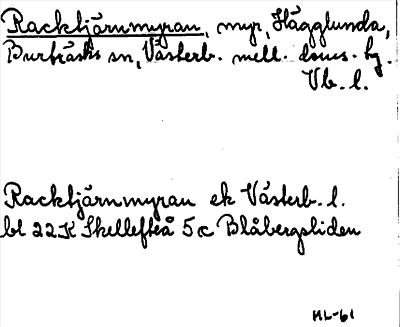 Racktjärnmyran, myr, Hägglunda,
Burträsks sn, Västerb. mell. doms. hg.
Vb. l.
Racktjärnmyran ek Västerb. l.
bl 22K Skellefteå 5c Blåbergsliden
HL-61